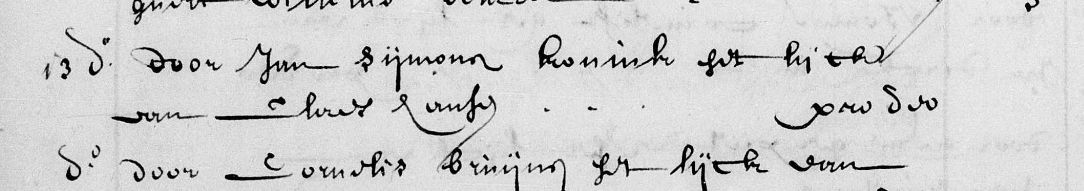 13 do. door Jan Sijmonsz konink het lijck
van Claes Jansz . . . pro deo
do door Cornelis Bruijns het lijck van